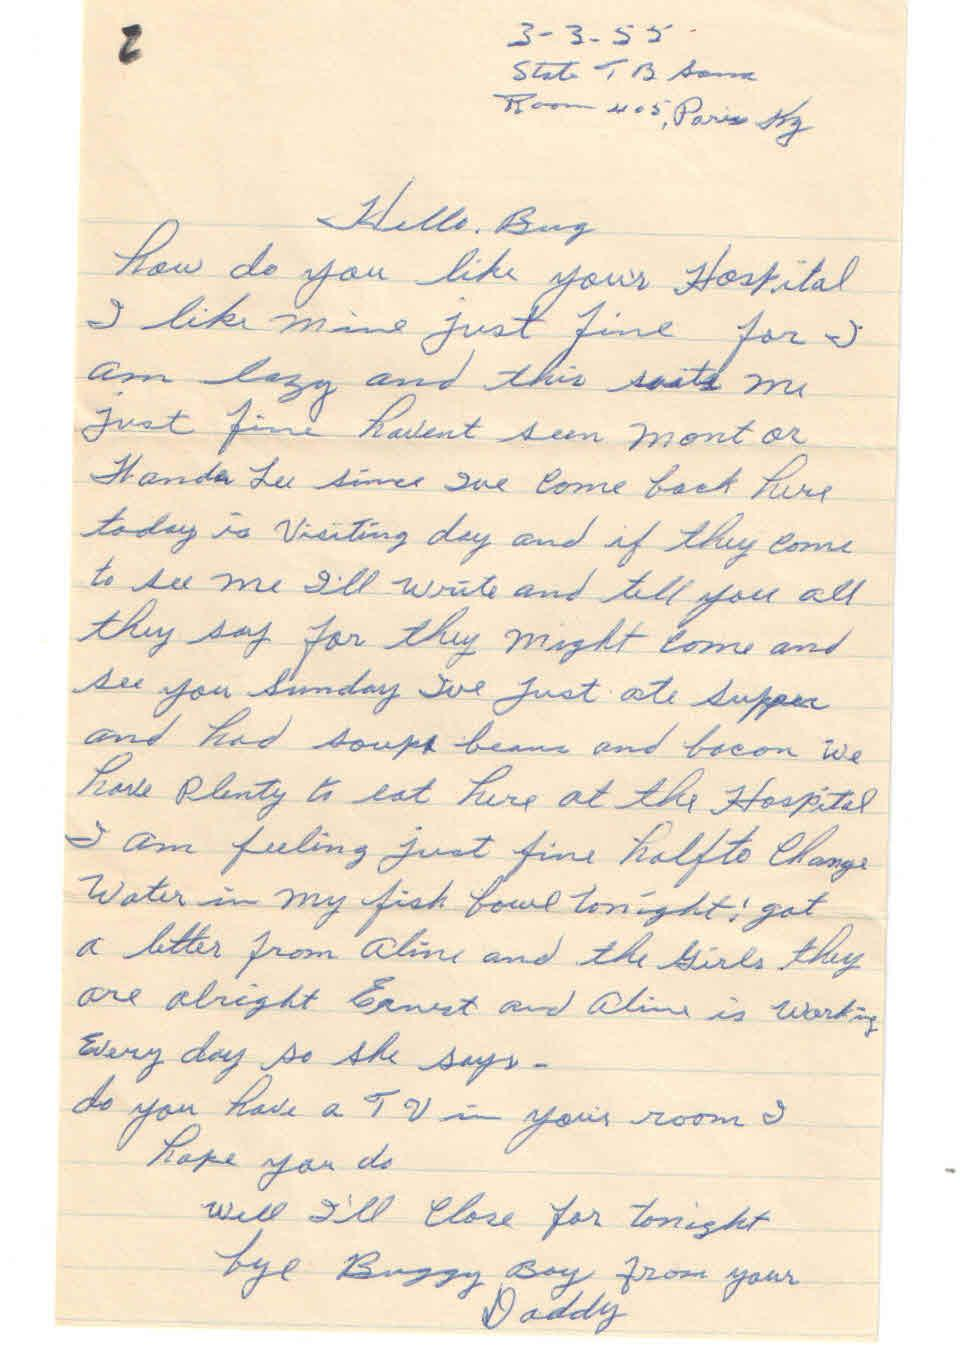 2
3-3-55
State T B Sana
Room 405, Paris Ky
Hello. Bug
how do you like your's Hospital
I like mine just fine for I
am lazy and this suits me
just fine havent seen Mont or
Wanda Lee since Ive Come back here
today is Visiting day and if they come
to see me I'll write and tell you all
they say for they might come and
see you Sunday Ive just ate supper
and had soups beans and bacon we
have plenty to eat here at the Hospital
I am feeling just fine halfto Change
Water in my fish bowl tonight! got
a letter from Aline and the Girls they
are alright Ernest and Aline is working
Every day so she says-
do you have a TV in your's room I
hope you do
Well I'll Close for tonight
bye Buggy Boy from your
Daddy